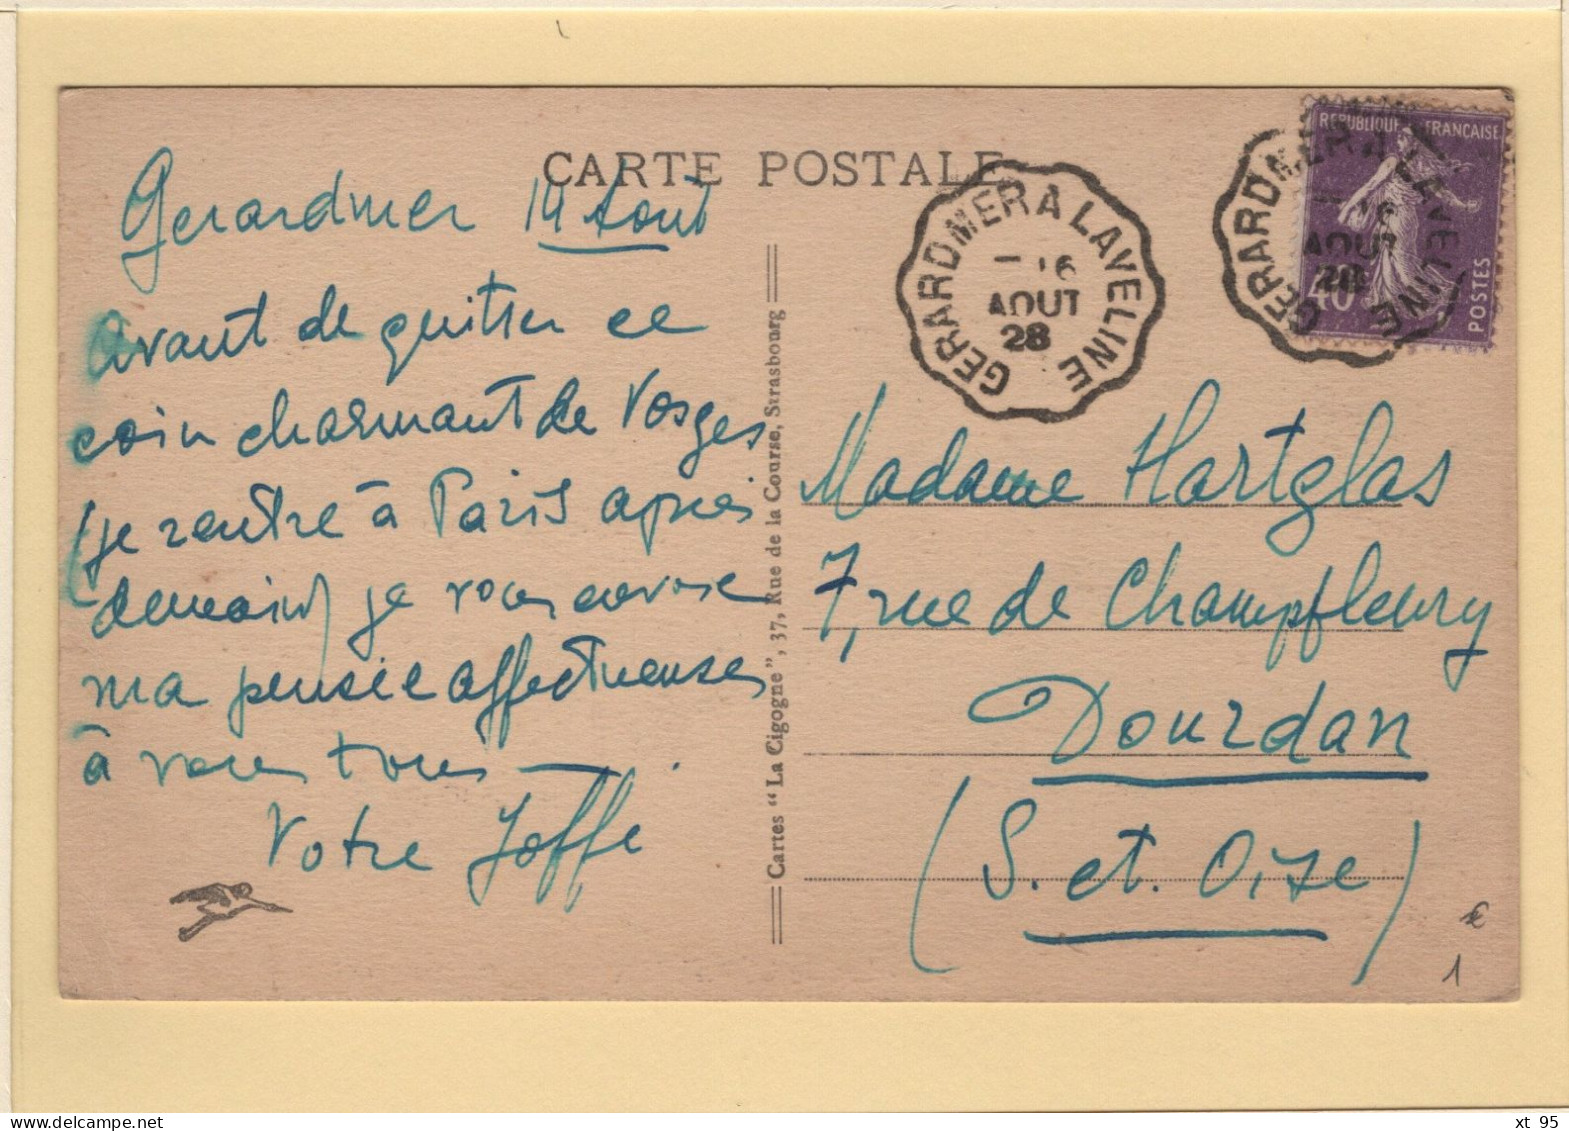 CARTE POSTALE
Gerardmer 14 Août
Avant de quitter ce
coin charmant de Vosges
(je rentre à Paris après
demain) je vous envoie
ma pensée affectueuse
à vous tous —.
Votre Joffe
Cartes “La Cigogne”, 37, Rue de la Course, Strasbourg
GERARDMER A LAVELINE
16
AOUT
28
REPUBLIQUE FRANÇAISE
40
POSTES
GERARDMER A LAVELINE
16
AOUT
28
Madame Hartglas
7, rue de Champfleury
Dourdan
(S. et. Oise)
€
1
xt 95